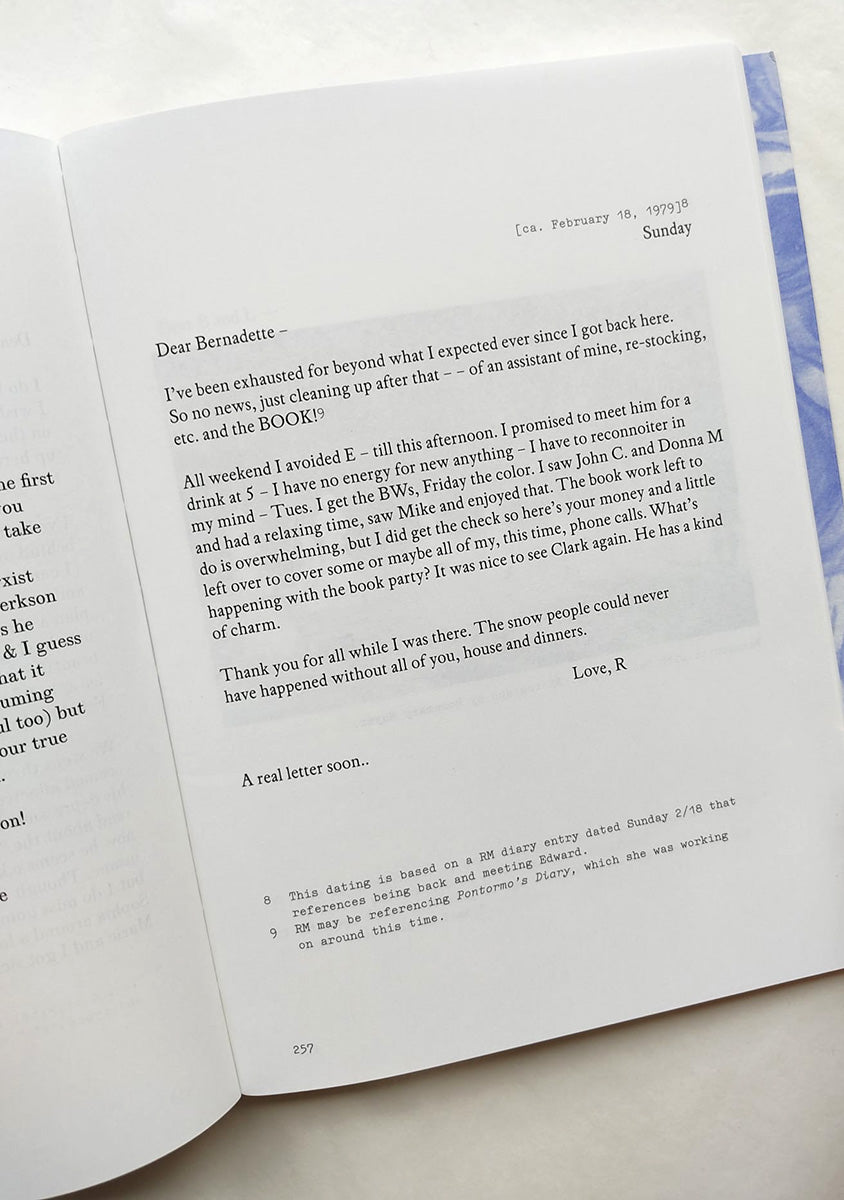 he first
ou
take
xist
erkson
s he
& I guess
hat it
uming
ul too) but
our true
.
on!
e
[ca. February 18, 1979]8
Sunday
Dear Bernadette –
I've been exhausted for beyond what I expected ever since I got back here.
So no news, just cleaning up after that – – of an assistant of mine, re-stocking,
etc. and the BOOK!9
All weekend I avoided E – till this afternoon. I promised to meet him for a
drink at 5 – I have no energy for new anything – I have to reconnoiter in
my mind – Tues. I get the BWs, Friday the color. I saw John C. and Donna M
and had a relaxing time, saw Mike and enjoyed that. The book work left to
do is overwhelming, but I did get the check so here's your money and a little
left over to cover some or maybe all of my, this time, phone calls. What's
happening with the book party? It was nice to see Clark again. He has a kind
of charm.
Thank you for all while I was there. The snow people could never
have happened without all of you, house and dinners.
Love, R
A real letter soon..
8 This dating is based on a RM diary entry dated Sunday 2/18 that
references being back and meeting Edward.
9 RM may be referencing Pontormo's Diary, which she was working
on around this time.
257